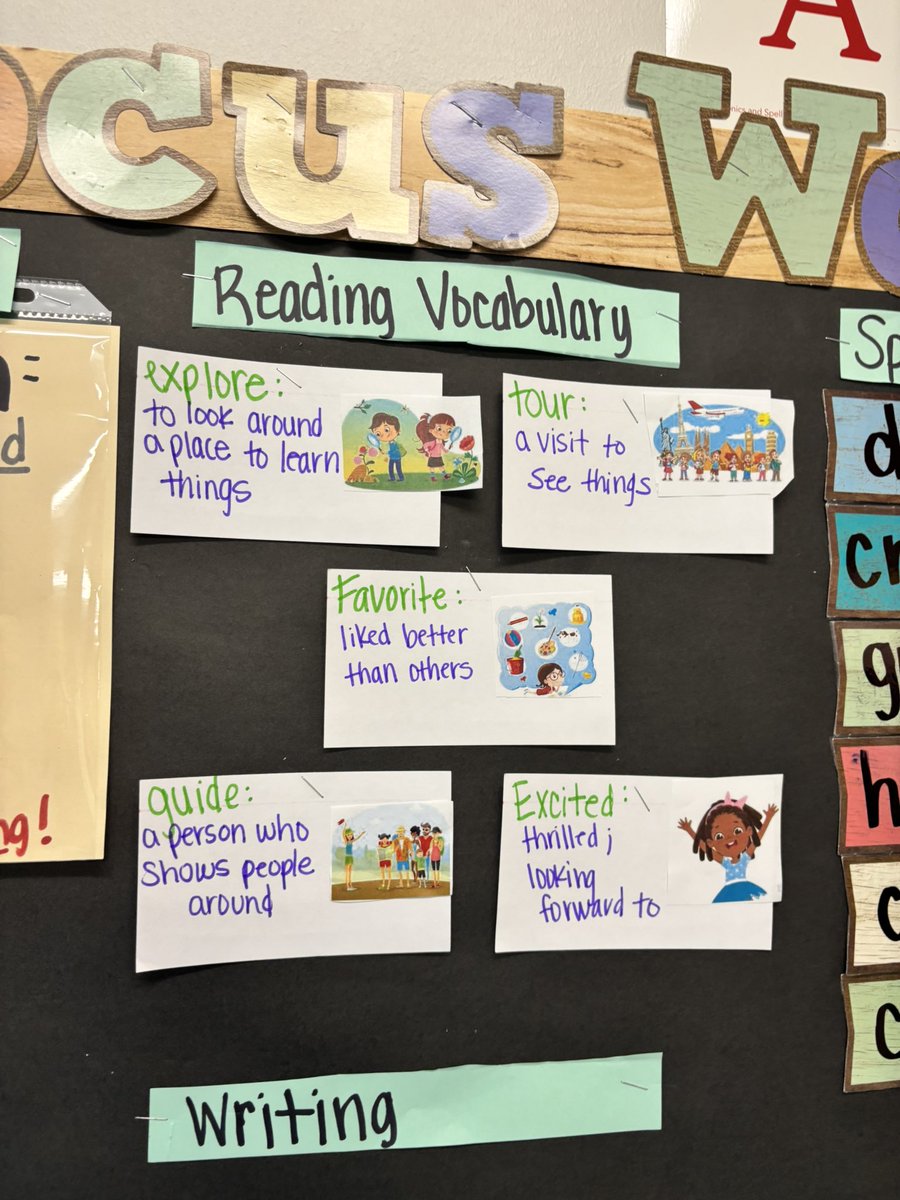 ocus W
A
nics and Spell
Reading Vocabulary
explore:
to look around
a place to learn
things
tour:
a visit to
see things
Favorite:
liked better
than others
guide:
a person who
shows people
around
Excited:
thrilled;
looking
forward to
Writing
Sp
d
cr
g
h
c
c
=
d
ng!